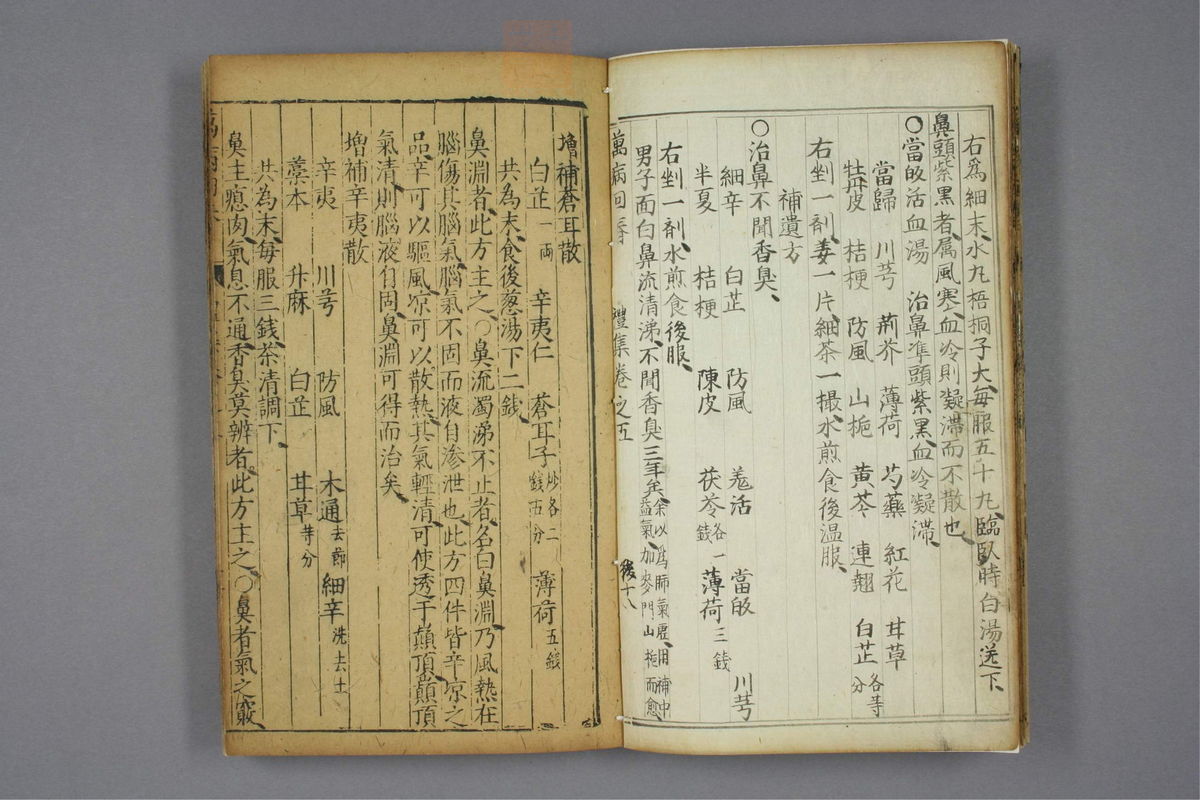 右爲細末水丸梧桐子大每服五十丸臨臥時白湯送下
鼻頭紫黑者属風塞血冷則凝滯而不散也
〇當皈活血湯　治鼻準頭紫黑血冷凝滯
當歸　川芎　荊芥　薄荷　芍藥　紅花　甘草
牡丹皮　桔梗　防風　山梔　黄芩　連翹　白芷各等分
右剉一剤姜一片細茶一撮水煎食後温服
補遺方
〇治鼻不聞香臭
細辛　白芷　防風　羗活　當皈　川芎
半夏　桔梗　陳皮　茯苓各一錢　薄荷三錢
右剉一剤水煎食後服
男子面白鼻流清涕不聞香臭三年矣余以爲肺氣虛用補中益氣加麥門山梔而愈
萬病回春　豊集卷之五　後十八
增補蒼耳散
白芷一兩　辛夷仁　蒼耳子炒各二錢五分　薄荷五錢
共為末食後葱湯下二錢
鼻淵者此方主之〇鼻流濁涕不止者名曰鼻淵乃風熱在
腦傷其腦氣腦氣不固而液自滲泄也此方四件皆辛凉之
品辛可以驅風凉可以散熱其氣輕清可使透于顛頂巔頂
氣清則腦液自固鼻淵可得而治矣
增補辛夷散
辛夷　川芎　防風　木通去節　細辛洗去土
藁本　升麻　白芷　甘草等分
共為末每服三錢茶清調下
鼻主瘜肉氣息不通香臭莫辨者此方主之〇鼻者氣之竅